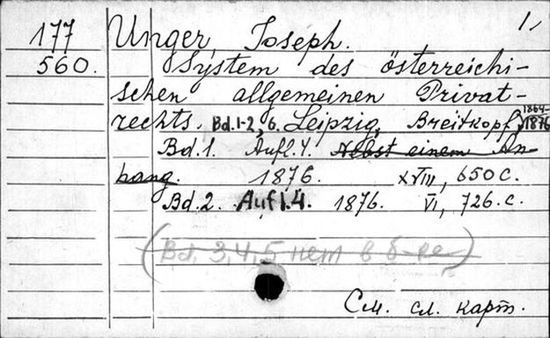 1,
177 Unger Joseph.
560. System des österreichi-
schen allgemeinen Privat-
rechts. Bd.1-2, 6. Leipzig, Breitkopf, 1864-1876
Bd.1. Aufl.4. Nebst einem An-
hang 1876. XVIII, 650 с.
Bd.2. Aufl.4. 1876. VI, 726. с.
(Bd. 3,4,5 нет в б-ке)
См. сл. карт.